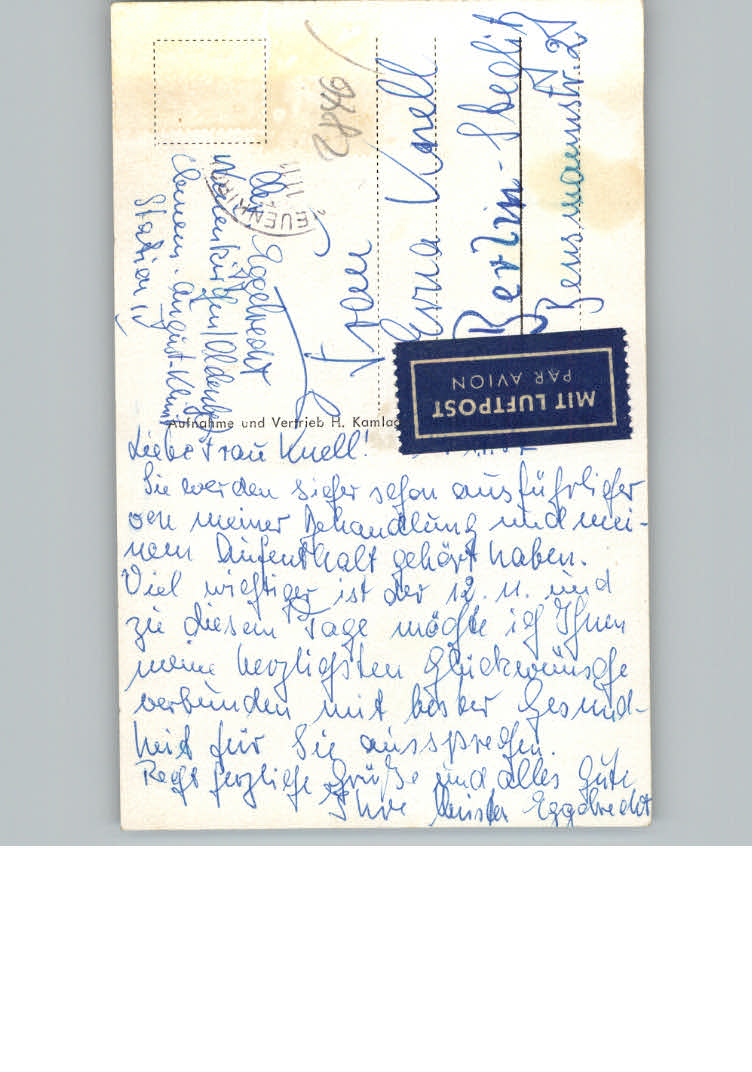 Liebe Frau Knell!
Sie werden sicher schon ausführlicher
von meiner Behandlung und mei-
nem Aufenthalt gehört haben.
Viel wichtiger ist der 12. 11. und
zu diesem Tage möchte ich Ihnen
meine herzlichsten Glückwünsche
verbunden mit bester Gesund-
heit für Sie aussprechen.
Recht herzliche Grüße und alles Gute
Ihre Eggebrecht
Frau
Erna Knell
Berlin-Steglitz
Bensemannstr. 25
Eggebrecht
Neuenkirchen/Oldenbg
Clemens-August-Klinik
Station IV
9582
EUENKIR
Aufnahme und Vertrieb H. Kamla
MIT LUFTPOST
PAR AVION